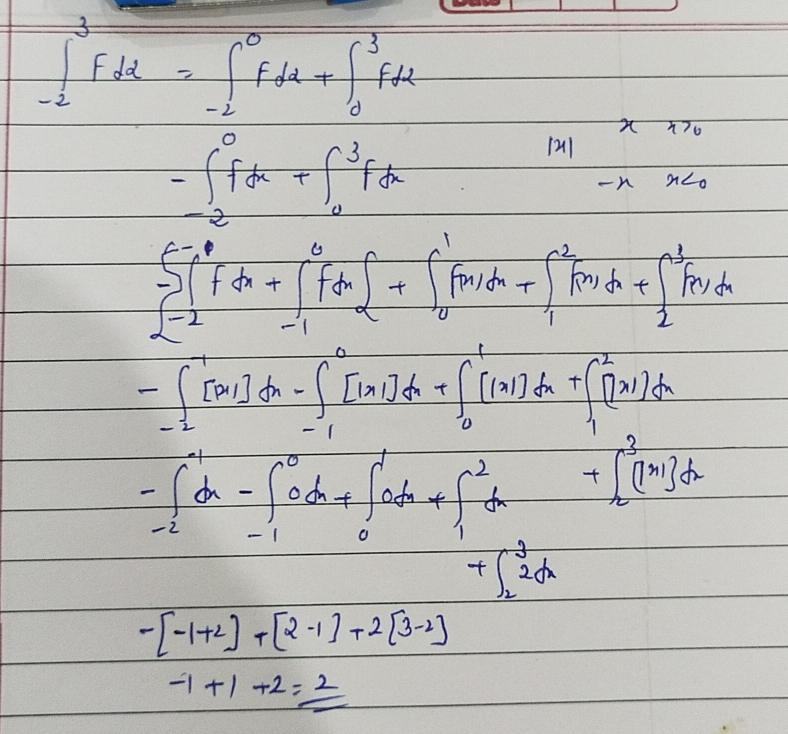 Date
∫_{-2}^{3} F dα = ∫_{-2}^{0} F dα + ∫_{0}^{3} F dα
- ∫_{-2}^{0} f dx + ∫_{0}^{3} f dx |x| x x>0
-x x<0
-{∫_{-2}^{-1} f dx + ∫_{-1}^{0} f dx} + ∫_{0}^{1} f(x) dx + ∫_{1}^{2} f(x) dx + ∫_{2}^{3} f(x) dx
- ∫_{-2}^{-1} [|x|] dx - ∫_{-1}^{0} [|x|] dx + ∫_{0}^{1} [|x|] dx + ∫_{1}^{2} [|x|] dx
+ ∫_{2}^{3} [|x|] dx
- ∫_{-2}^{-1} dx - ∫_{-1}^{0} 0 dx + ∫_{0}^{1} 0 dx + ∫_{1}^{2} dx
+ ∫_{2}^{3} 2 dx
-[-1+2] + [2-1] + 2[3-2]
-1 + 1 + 2 = 2